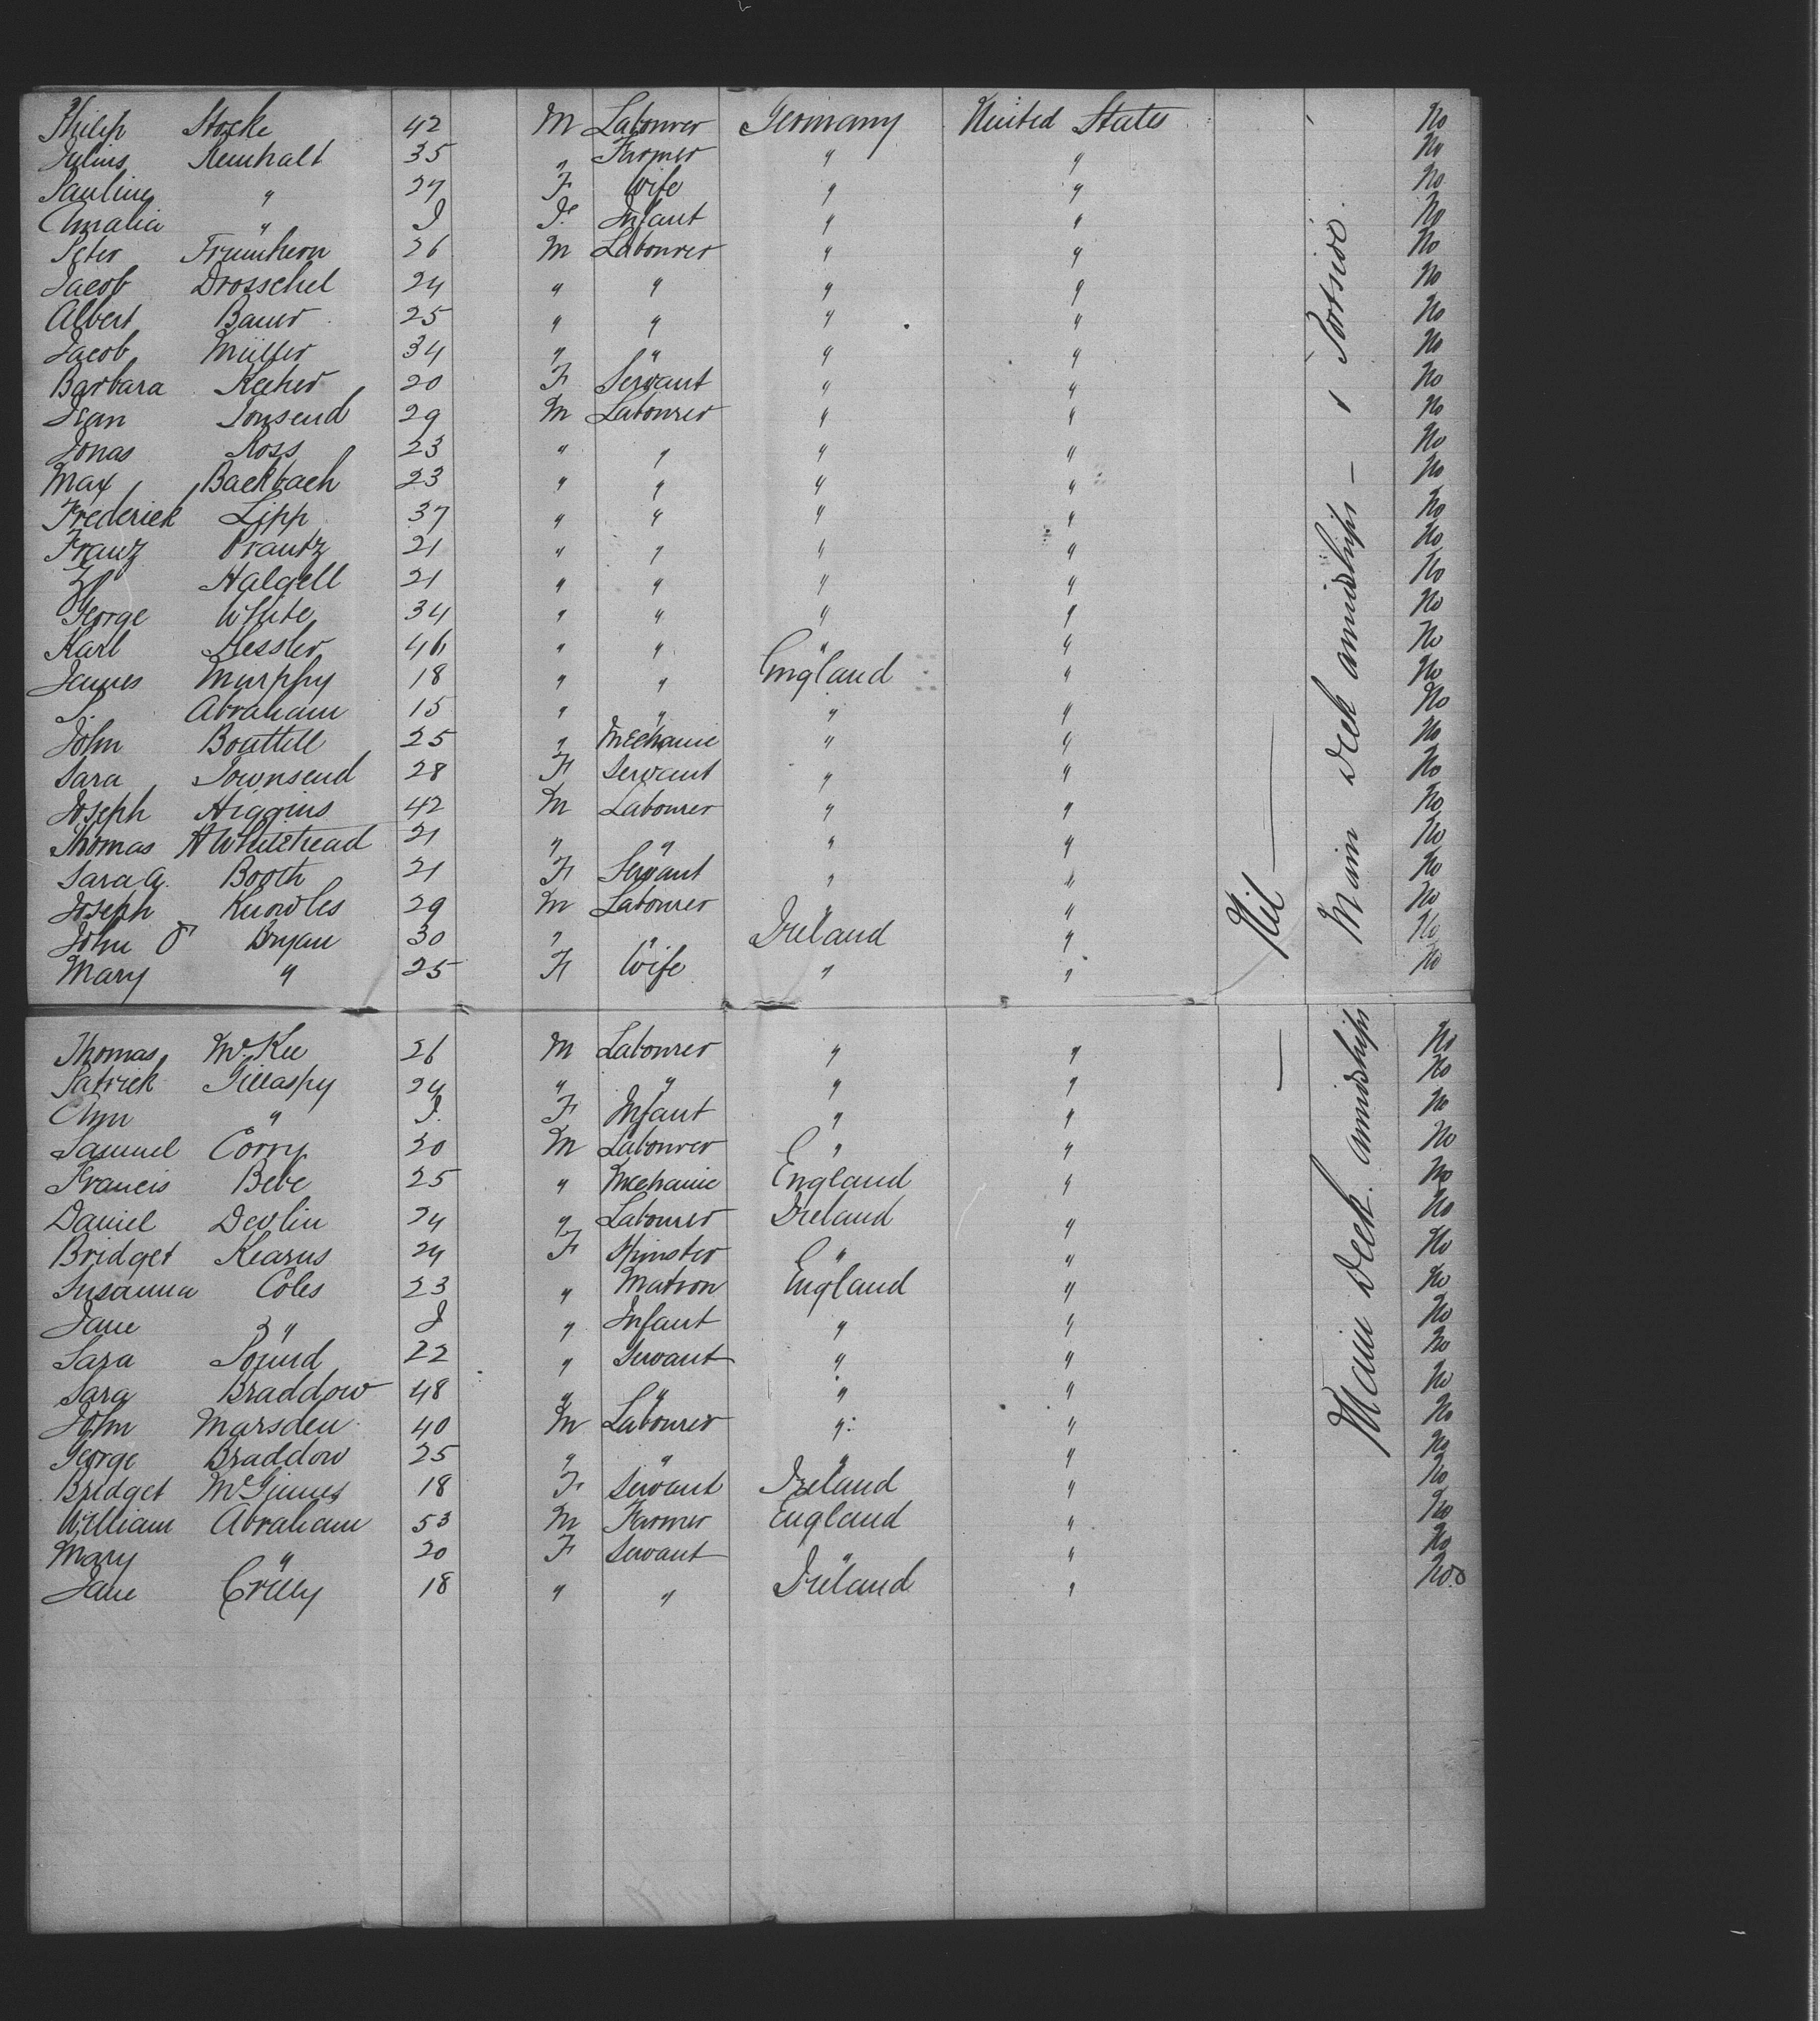 Philip Stocke 42 M Labourer Germany United States No
Julius Reinhalt 35 " Farmer " " No
Pauline " 27 F Wife " " No
Amalia " I F. Infant " " No
Peter Frumkorn 26 M Labourer " " No
Jacob Drosschel 24 " " " " No
Albert Bauer 25 " " " " No
Jacob Müller 34 " " " " No
Barbara Kecher 20 F Servant " " No
Jean Tonsend 29 M Labourer " " No
Jonas Ross 23 " " " " No
Max Backbach 23 " " " " No
Frederick Lipp 37 " " " " No
Franz Prantz 21 " " " " No
Halgell 21 " " " " No
George White 34 " " " " No
Karl Hessler 46 " " " " No
James Murphy 18 " " England " No
S. Abraham 15 " " " " No
John Bouttell 25 " Mechanic " " No
Sara Townsend 28 F Servant " " No
Joseph Higgins 42 M Labourer " " No
Thomas H Whitehead 21 " " " " No
Sara A. Booth 21 F Servant " " No
Joseph Knowles 29 M Labourer " " No
John O' Bryan 30 " " Ireland " No
Mary " 25 F Wife " " No
Nil
Main Deck amidships - " Portside.
Thomas McKee 26 M Labourer " " No
Patrick Gillaspy 24 " " " " No
Ann " I. F Infant " " No
Samuel Corry 20 M Labourer " " No
Francis Bebe 25 " Mechanic England " No
Daniel Devlin 24 " Labourer Ireland " No
Bridget Kearns 24 F Spinster " " No
Susanna Coles 23 " Matron England " No
Jane " I " Infant " " No
Sara Pound 22 " Servant " " No
Sara Braddow 48 " " " " No
John Marsden 40 M Labourer " " No
George Braddow 25 " " " " No
Bridget McGinnes 18 F Servant Ireland " No
William Abraham 53 M Farmer England " No
Mary " 20 F Servant " " No
Jane Crilly 18 " " Ireland " No
Main Deck amidships